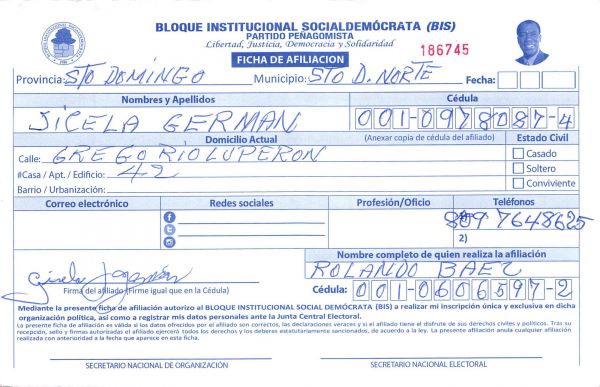 BLOQUE INSTITUCIONAL SOCIALDEMÓCRATA (BIS)
PARTIDO PEÑAGOMISTA
Libertad, Justicia, Democracia y Solidaridad
FICHA DE AFILIACION
186745
Provincia: STO DOMINGO Municipio: STO D. NORTE Fecha:
Nombres y Apellidos Cédula
JICELA GERMAN 001-0978087-4
Domicilio Actual (Anexar copia de cédula del afiliado) Estado Civil
Calle: GREGORIO LUPERON Casado
#Casa / Apt. / Edificio: 42 Soltero
Barrio / Urbanización: Conviviente
Correo electrónico Redes sociales Profesión/Oficio Teléfonos
809 7648625
2)
Nombre completo de quien realiza la afiliación
ROLANDO BAEZ
Firma del afiliado (Firme igual que en la Cédula) Cédula: 001-0606597-2
Mediante la presente ficha de afiliación autorizo al BLOQUE INSTITUCIONAL SOCIAL DEMÓCRATA (BIS) a realizar mi inscripción única y exclusiva en dicha
organización política, así como a registrar mis datos personales ante la Junta Central Electoral.
La presente ficha de afiliación es válida si los datos ofrecidos por el afiliado son correctos, las declaraciones veraces y si el afiliado tiene el disfrute de sus derechos civiles y políticos. Tras su
recepción, sello y firmas autorizadas el afiliado ejercerá todos los derechos y los deberes estatutariamente sancionados, de acuerdo a la ley. La presente afiliación anula cualquier afiliación
realizada con anterioridad a la fecha que aparece en esta ficha.
SECRETARIO NACIONAL DE ORGANIZACIÓN SECRETARIO NACIONAL ELECTORAL